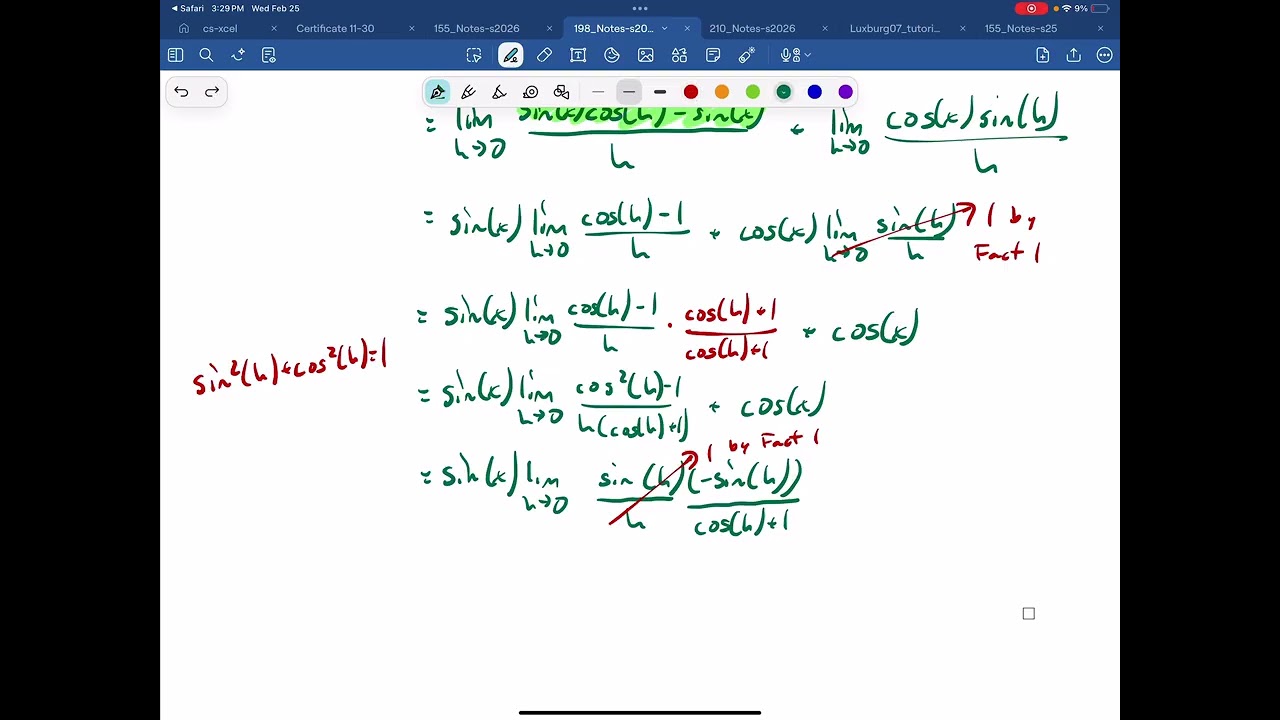 ◀ Safari 3:29 PM Wed Feb 25 9%
cs-xcel Certificate 11-30 155_Notes-s2026 198_Notes-s20... 210_Notes-s2026 Luxburg07_tutori... 155_Notes-s25
= lim h→0 (sin(x)cos(h) - sin(x))/h + lim h→0 (cos(x) sin(h))/h
= sin(x) lim h→0 (cos(h) - 1)/h + cos(x) lim h→0 sin(h)/h 1 by Fact 1
= sin(x) lim h→0 (cos(h) - 1)/h · (cos(h) + 1)/(cos(h) + 1) + cos(x)
sin²(h) + cos²(h) = 1
= sin(x) lim h→0 (cos²(h) - 1)/(h(cos(h) + 1)) + cos(x)
1 by Fact 1
= sin(x) lim h→0 sin(h)/h (-sin(h))/(cos(h) + 1)
□